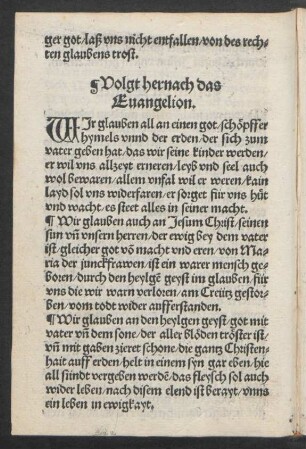 ger got/laß vns nicht entfallen/von des rech-
ten glaubens trost.
¶Volgt hernach das
Euangelion.
WIr glauben all an einen got/schöpffer
hymels vnnd der erden/der sich zum
vater geben hat/das wir seine kinder werden/
er wil vns allzeyt erneren/leyb vnd seel auch
wol bewaren/allem vnfal wil er weren/kain
layd sol vns widerfaren/er sorget für vns hüt
vnd wacht/es steet alles in seiner macht.
¶ Wir glauben auch an Jesum Christ/seinen
sun vñ vnsern herren/der ewig bey dem vater
ist/gleicher got võ macht vnd eren/von Ma-
ria der junckfrawen/ist ein warer mensch ge-
boren/durch den heylgẽ geyst im glauben/für
vns die wir warn verloren/am Creütz gestor-
ben/vom todt wider aufferstanden.
¶ Wir glauben an den heylgen geyst/got mit
vater vñ dem sone/der aller blöden tröster ist/
vñ mit gaben zieret schone/die gantz Christen-
hait auff erden/helt in einem syn gar eben/hie
all sündt vergeben werdẽ/das fleysch sol auch
wider leben/nach disem elend ist berayt/vnns
ein leben in ewigkayt.